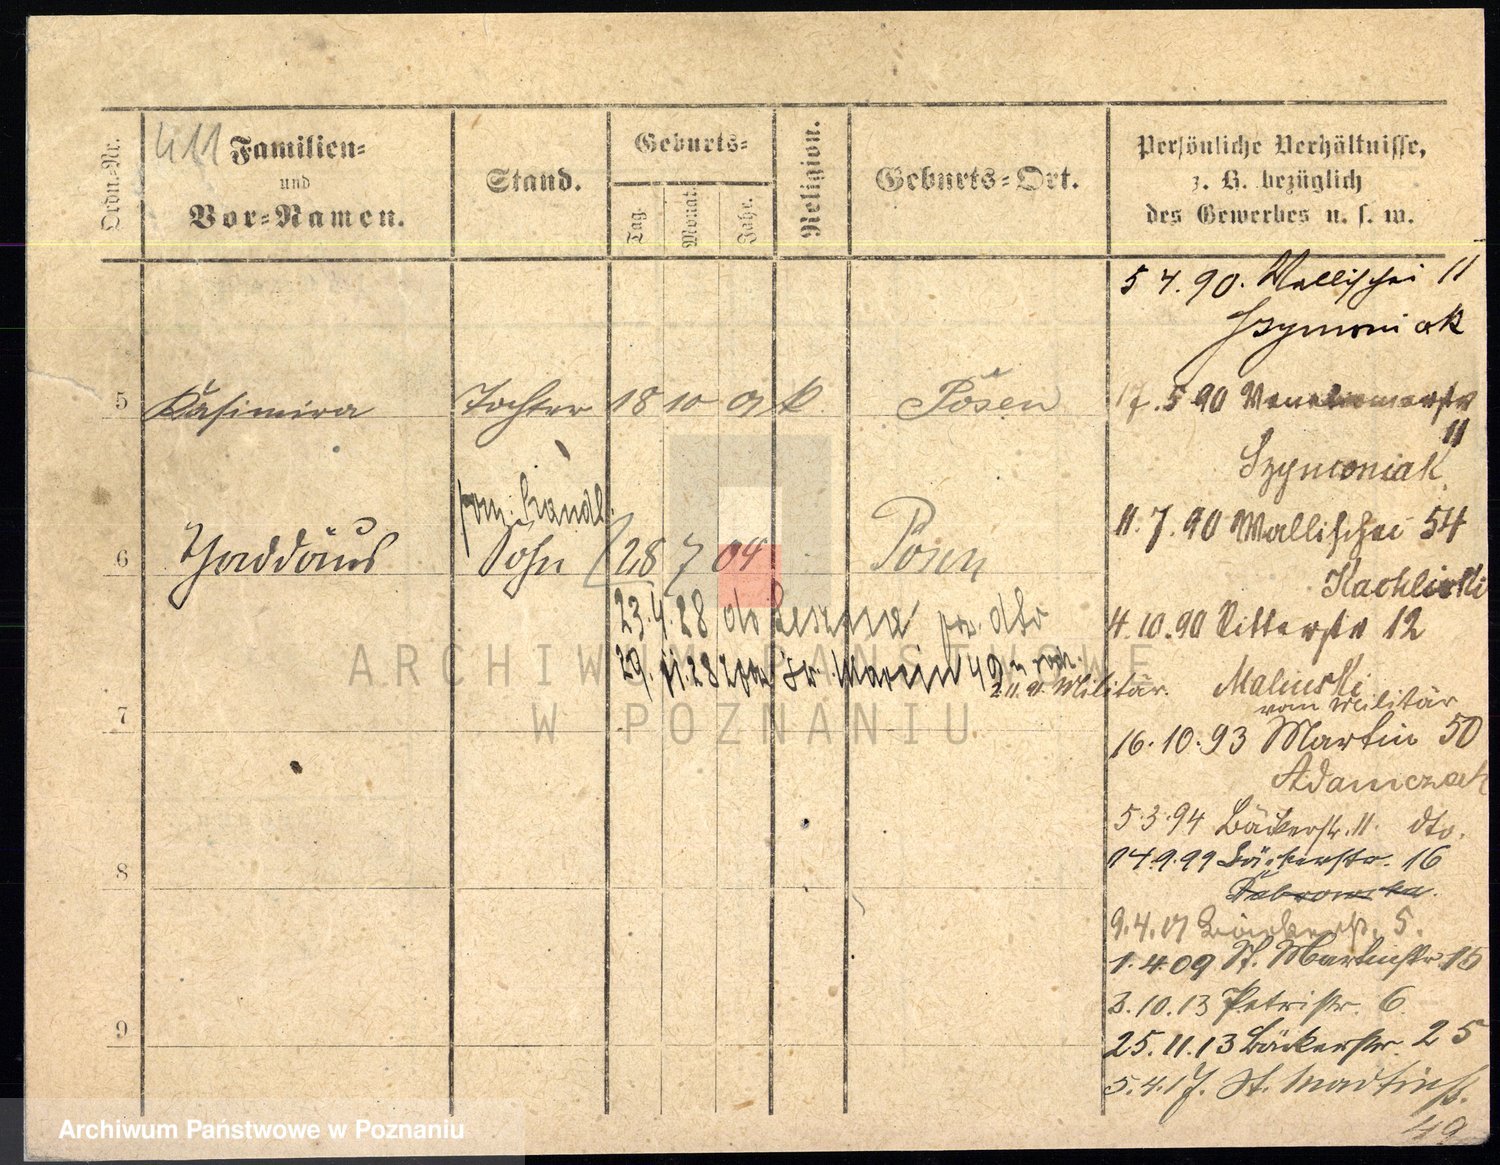 Ordn.-Nr.
411 Familien-
und
Vor-Namen.
Stand.
Geburts-
Tag.
Monat.
Jahr.
Religion.
Geburts-Ort.
Persönliche Verhältnisse,
z. B. bezüglich
des Gewerbes u. s. w.
5 4. 90. Wallischei 11
Szymoniak
5 Kasimira Tochter 18 10 01 k Posen
17. 5 90
11
Szymoniak
11. 7. 90 Wallischei 54
Kachlinski
4. 10. 90 Ritterstr 12
Malinski
vom Militär
16. 10. 93 Martin 50
Adamczak
5. 3. 94 Bäckerstr. 11. dto.
14. 9. 99 Bäckerstr. 16
Dabrowska.
9. 4. 07 Bäckerstr. 5.
1. 4. 09 St. Martinstr. 15
3. 10. 13 Petristr. 6
25. 11. 13 Bäckerstr. 25
5. 4. 17. St. Martinstr.
49
handl.
6 Thaddäus Sohn 28 7 04 Posen
23. 4. 28 do Leszna dto
29. 11. 28 Św. Marcin 49
z. v. Militär.
7
8
9
ARCHIWUM PAŃSTWOWE
W POZNANIU
Archiwum Państwowe w Poznaniu